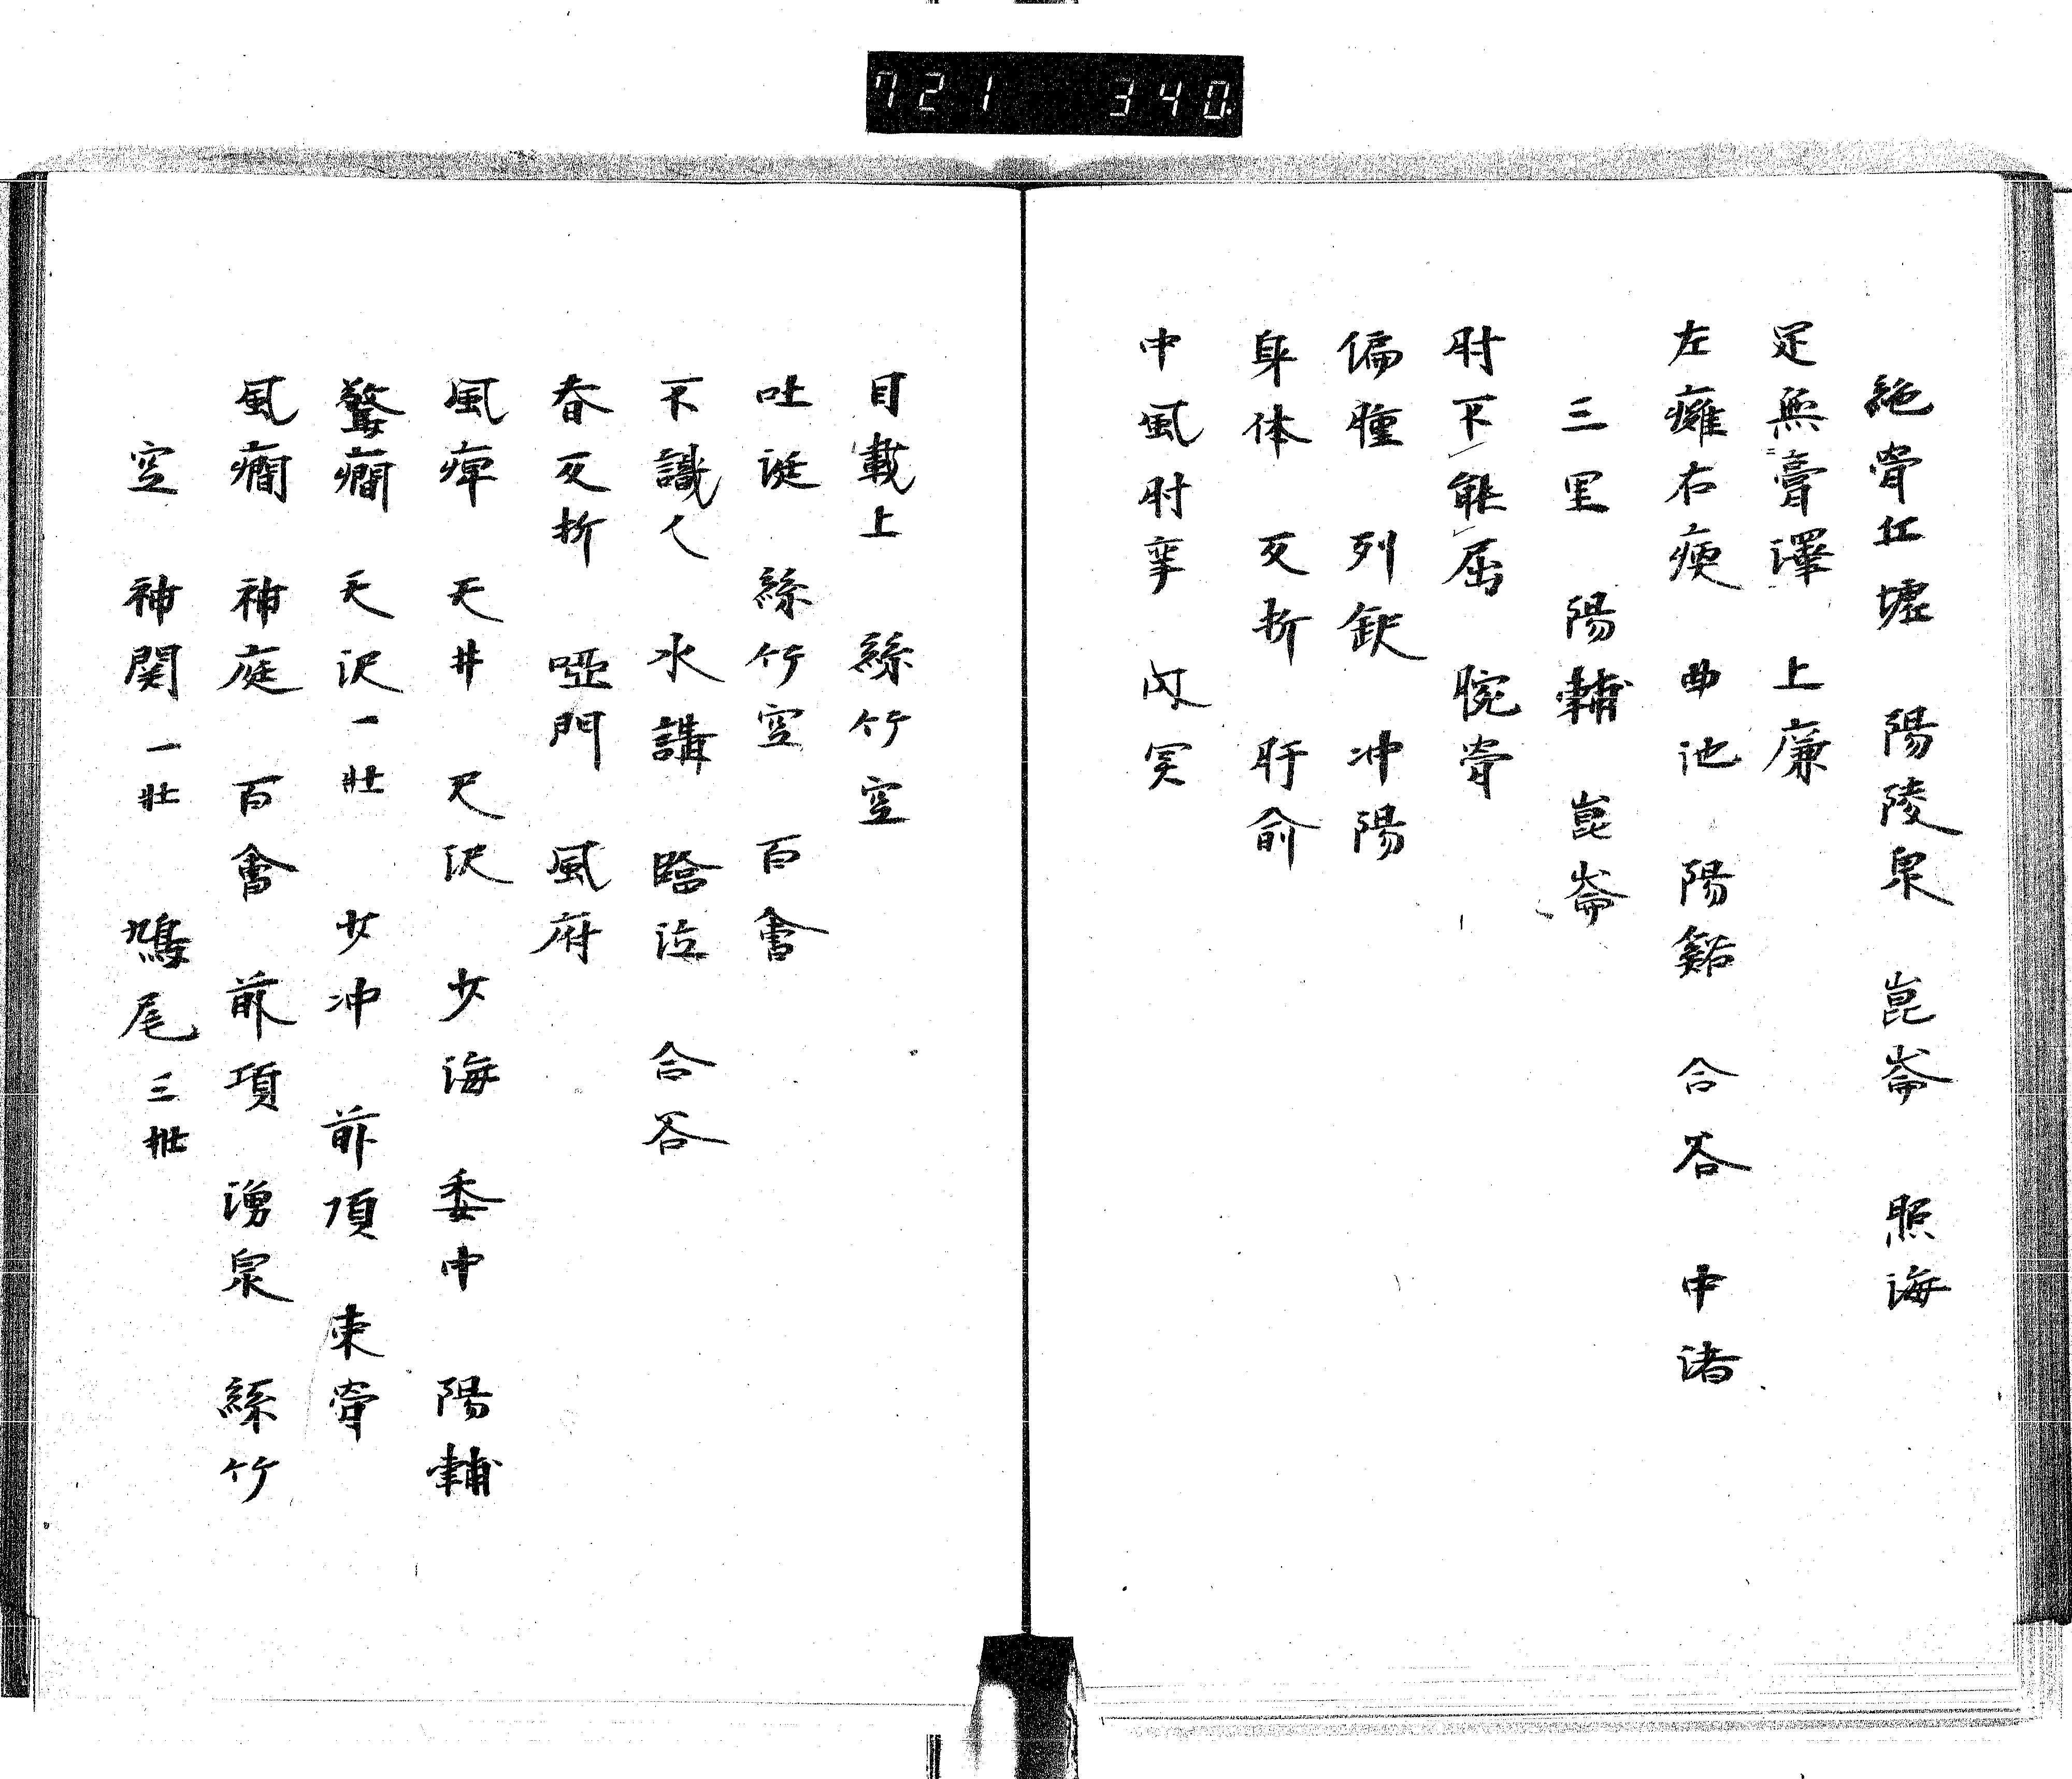 721 340
絶骨丘墟 陽陵泉 崑崙 照海
足無膏澤 上廉
左癱右瘓 曲池 陽谿 合谷 中渚
三里 陽輔 崑崙
肘不能屈 腕骨
偏腫 列缺 冲陽
身体反折 肝俞
中風肘挛 内关
目戴上 絲竹空
吐涎 絲竹空 百會
不識人 水溝 臨泣 合谷
脊反折 啞門 風府
風痺 天井 尺沢 少海 委中 陽輔
驚癇 天沢一壯 少冲 前頂 束骨
風癇 神庭 百會 前項 湧泉 絲竹
空 神関一壯 鳩尾三壯